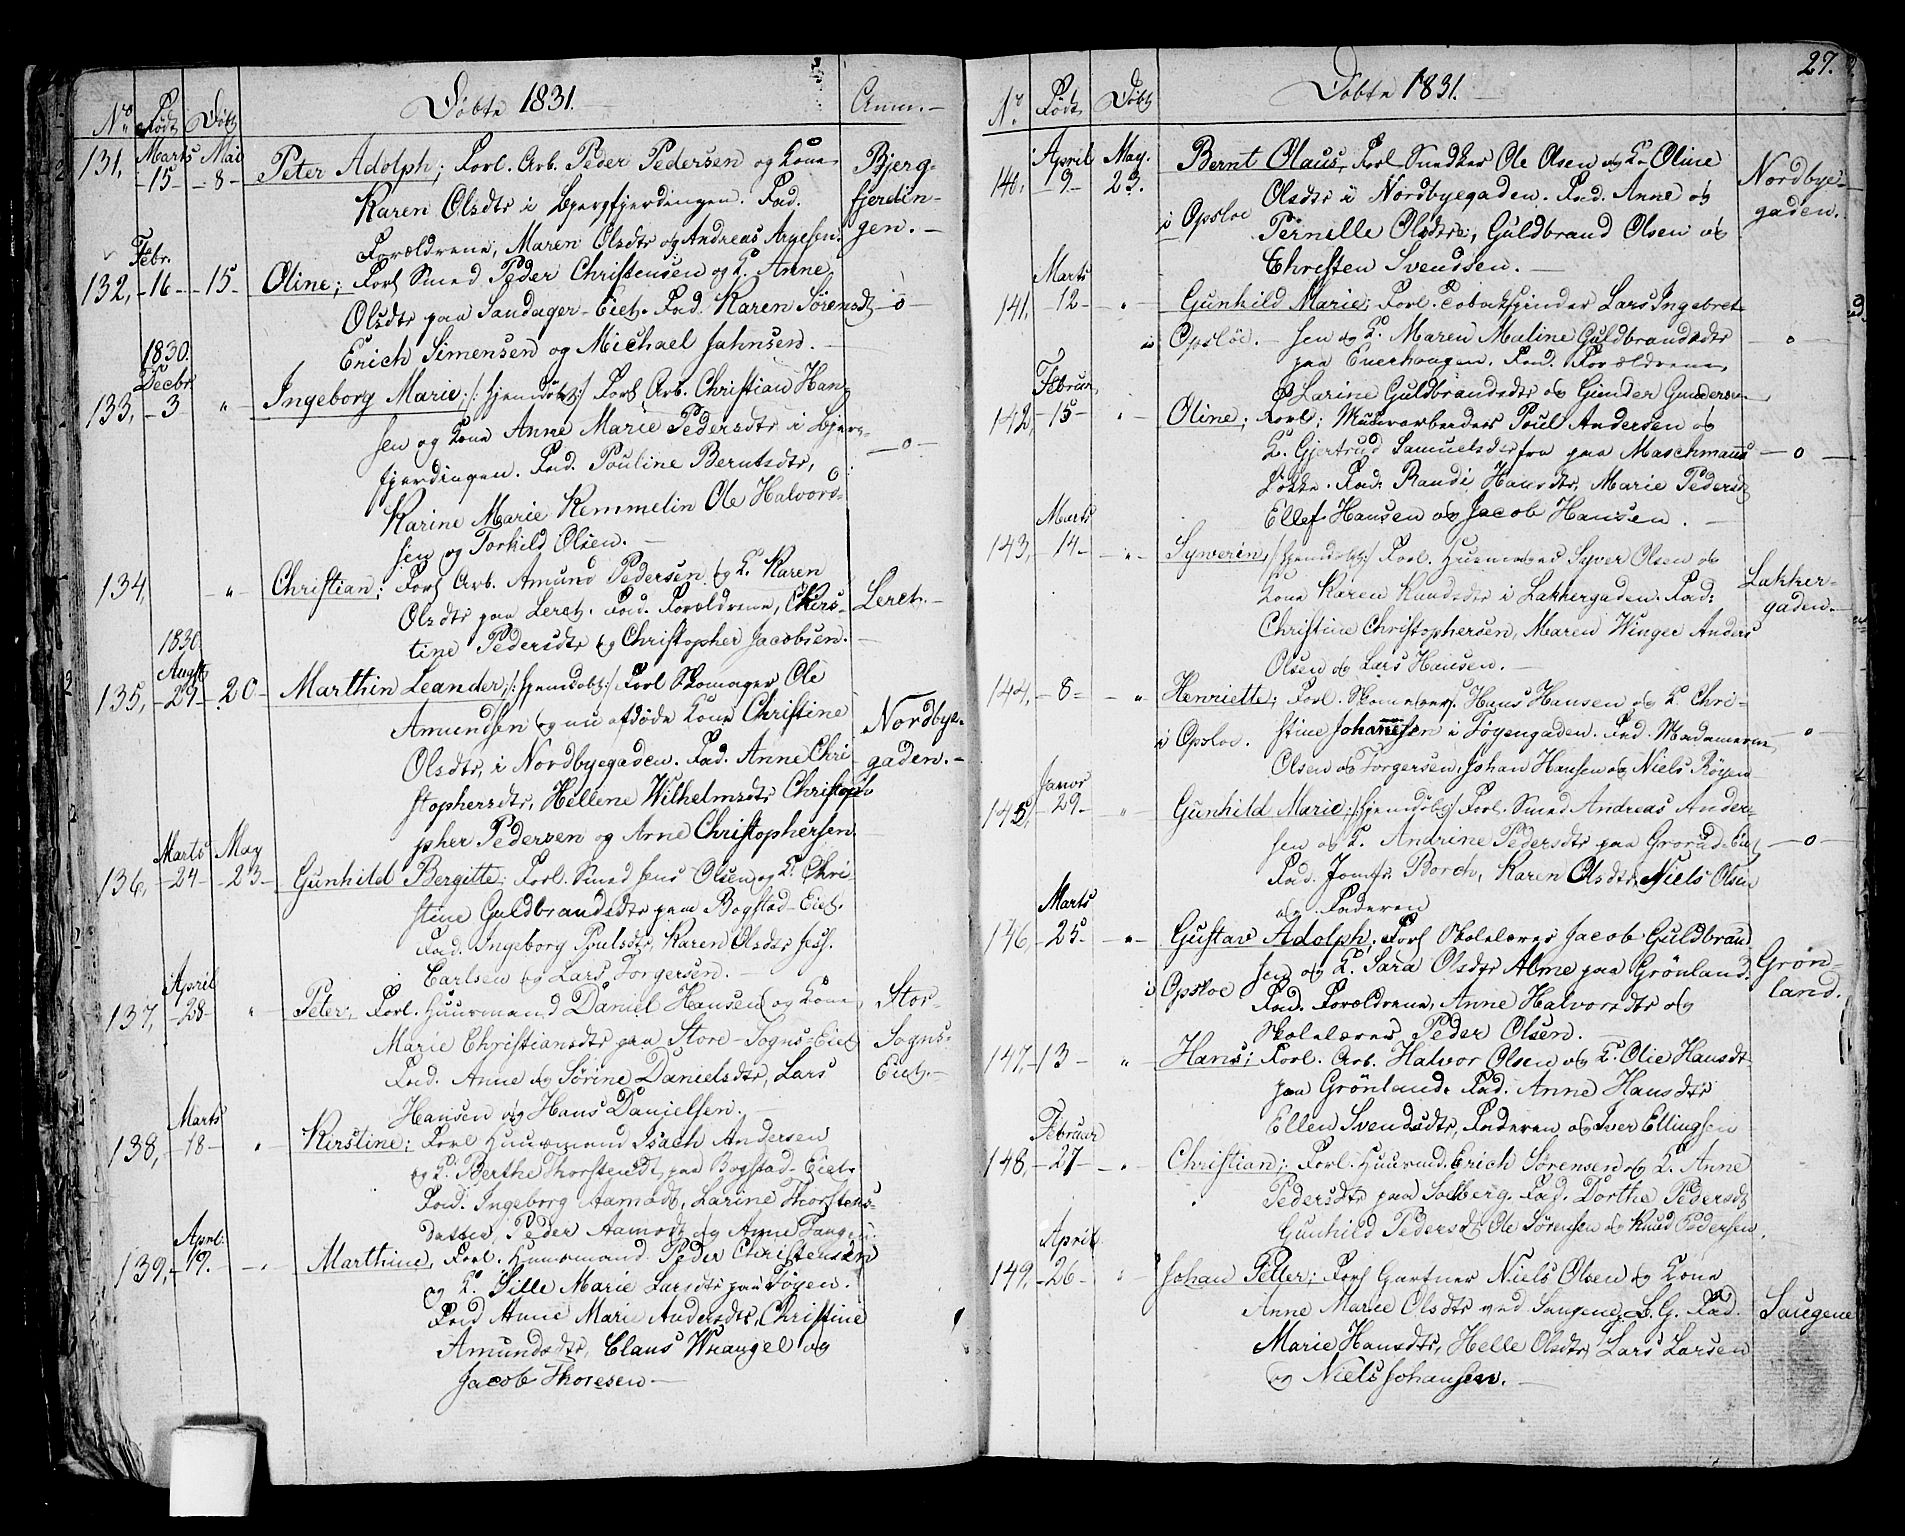 Døbte 1831.
No. Født Døbt Anm.
131, Marts 15 Mai 8 Peter Adolph; Forl. Arb. Peder Pedersen og Kone Bjerg-
Karen Olsdtr i Bjergfjerdingen. Fad. fjerdin-
Forældrene, Maren Olsdtr og Andreas Arnesen. gen.
132, Febr. 16 15 Oline; Forl Smed Peder Christensen og K. Anne
Olsdtr paa Sandager-Eiet. Fad. Karen Sørensdt o
Erich Simensen og Michael Jahnsen.
133, 1830. Decbr 3 " Ingeborg Marie; /: hjemdøbt:/ Forl. Arb. Christian Han-
sen og Kone Anne Marie Pedersdtr i Bjerg-
fjerdingen. Fad. Pouline Berntsdtr, o
Karine Marie Kemmelin Ole Halvord-
sen og Torkild Olsen.
134, " Christian; Forl Arb. Amund Pedersen og K. Karen
Olsdtr paa Leret. Fad. Forældrene, Kirs- Leret.
tine Pedersdtr og Christopher Jacobsen.
135, 1830 Augst 29 20 Marthin Leander; /: hjemdøbt:/ Forl Skomager Ole
Amundsen og nu afdøde Kone Christine Nordbye-
Olsdtr, i Nordbyegaden. Fad. Anne Chri- gaden.
stophersdtr, Hellene Wilhelmsdtr Christo-
pher Pedersen og Arne Christophersen
136, Marts 24 May 23 Gunhild Bergitte; Forl. Smed Jens Olsen og K. Chri
stine Guldbrandsdtr paa Bogstad-Eiet.
Fad. Ingeborg Poulsdtr, Karen Olsdtr
Carlsen og Lars Torgersen.
137, April 28 " Peter; Forl. Huusmand Daniel Hansen og Kone Stor-
Marie Christiansdtr paa Store-Sogns-Eiet Sogns-
Fad. Anne og Sørine Danielsdtr, Lars Eiet.
Hansen og Hans Danielsen.
138, Marts 18 " Kirstine; Forl Huusmand Isach Andersen
og K. Berthe Thorstensdt, paa Bogstad-Eiet.
Fad. Ingeborg Aamodt, Larine Thorstens-
datter, Peder Aamodt og Arne Tangen.
139, April 19. " Marthine, Forl. Huusmand Peder Christensen
og K. Sille Marie Larsdtr paa Tøyen.
Fad Anne Marie Andersdtr, Christine
Amundsdtr, Claus Wrangel og
Jacob Thoresen
27.
Døbte 1831.
No. Født Døbt
140, April 9 May. 23. Bernt Olaus, Forl Snedker Ole Olsen og K. Oline Nordbye-
Olsdtr i Nordbyegaden. Fad. Anne og gaden.
i Opsloe Pernille Olsdtre, Guldbrand Olsen og
Christen Svendsen.
141. Marts 12 " Gunhild Marie; Forl. Tobakspinder Lars Ingebret-
i Opsloe. sen og K. Maren Maline Guldbrandsdtr o
paa Enerhaugen. Fad. Forældrene,
Larine Guldbrandsdtr og Gunder Gundersen
142, Februar 15 " Oline; Forl; Muurarbeider Poul Andersen og
K. Gjertrud Samuelsdtr paa Maschmanns o
Løkke. Fad: Randi Hansdtr, Marie Pedersdt
Ellef Hansen og Jacob Hansen.
143, Marts 14 " Syverin, /: hjemdøbt:/ Forl. Huusmand Syver Olsen og
Kone Karen Knudsdtr i Lakkergaden. Fad: Lakker-
Christine Christophersen, Maren Winger Anders gaden.
Olsen og Lars Hansen.
144, 8 " Henriette; Forl. Skomagerf. Hans Hansen og K. Chri-
i Opsloe. stine Johannesen i Tøyengaden. Fad. Madamerne "
Olsen og Torgersen, Johan Hansen og Niels Røyen
145, Januar 29 " Gunhild Marie; /: hjemdøbt:/ Forl. Smed Andreas Ander-
sen og K. Andrine Pedersdtr paa Grorud-Eiet o
Fad. Jomfr Borch, Karen Olsdtr, Niels Olsen
og Faderen
146, Marts 25 " Gustav Adolph; Forl Skolelærer Jacob Guldbrand
sen og K. Sara Olsdtr Alme paa Grønland. Grøn-
i Opsloe Fad. Forældrene, Anne Halvorsdtr og land.
Skolelærer Peder Olsen.
147, 13 " Hans; Forl. Arb. Halvor Olsen og K. Olie Hansdt
paa Grønland. Fad. Anne Hansdtr
Ellen Svendsdtr, Faderen og Iver Ellingsen
148, Februar 27 " Christian; Forl. Huusmd. Erich Sørensen og K. Anne
Pedersdtr paa Solberg. Fad. Dorthe Pedersdt
Gunhild Pedersdt, Ole Sørensen og Knud Pedersen.
149, April 26 " Johan Petter; Forl Gartner Niels Olsen og Kone
Anne Marie Olsdtr ved Saugene. Fad. Saugene
Marie Hansdtr, Helle Olsdtr, Lars Larsen
og Niels Johansen.